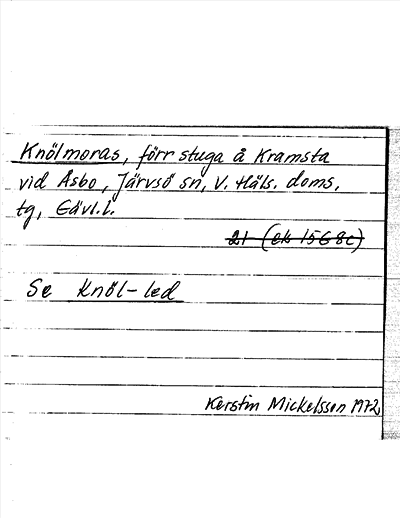 Knölmoras, förr stuga å Kramsta
vid Åsbo, Järvsö sn, V. Häls. doms.
tg, Gävl.l.
21 (ek 15G 8c)
Se Knöl-led
Kerstin Mickelsson 1972